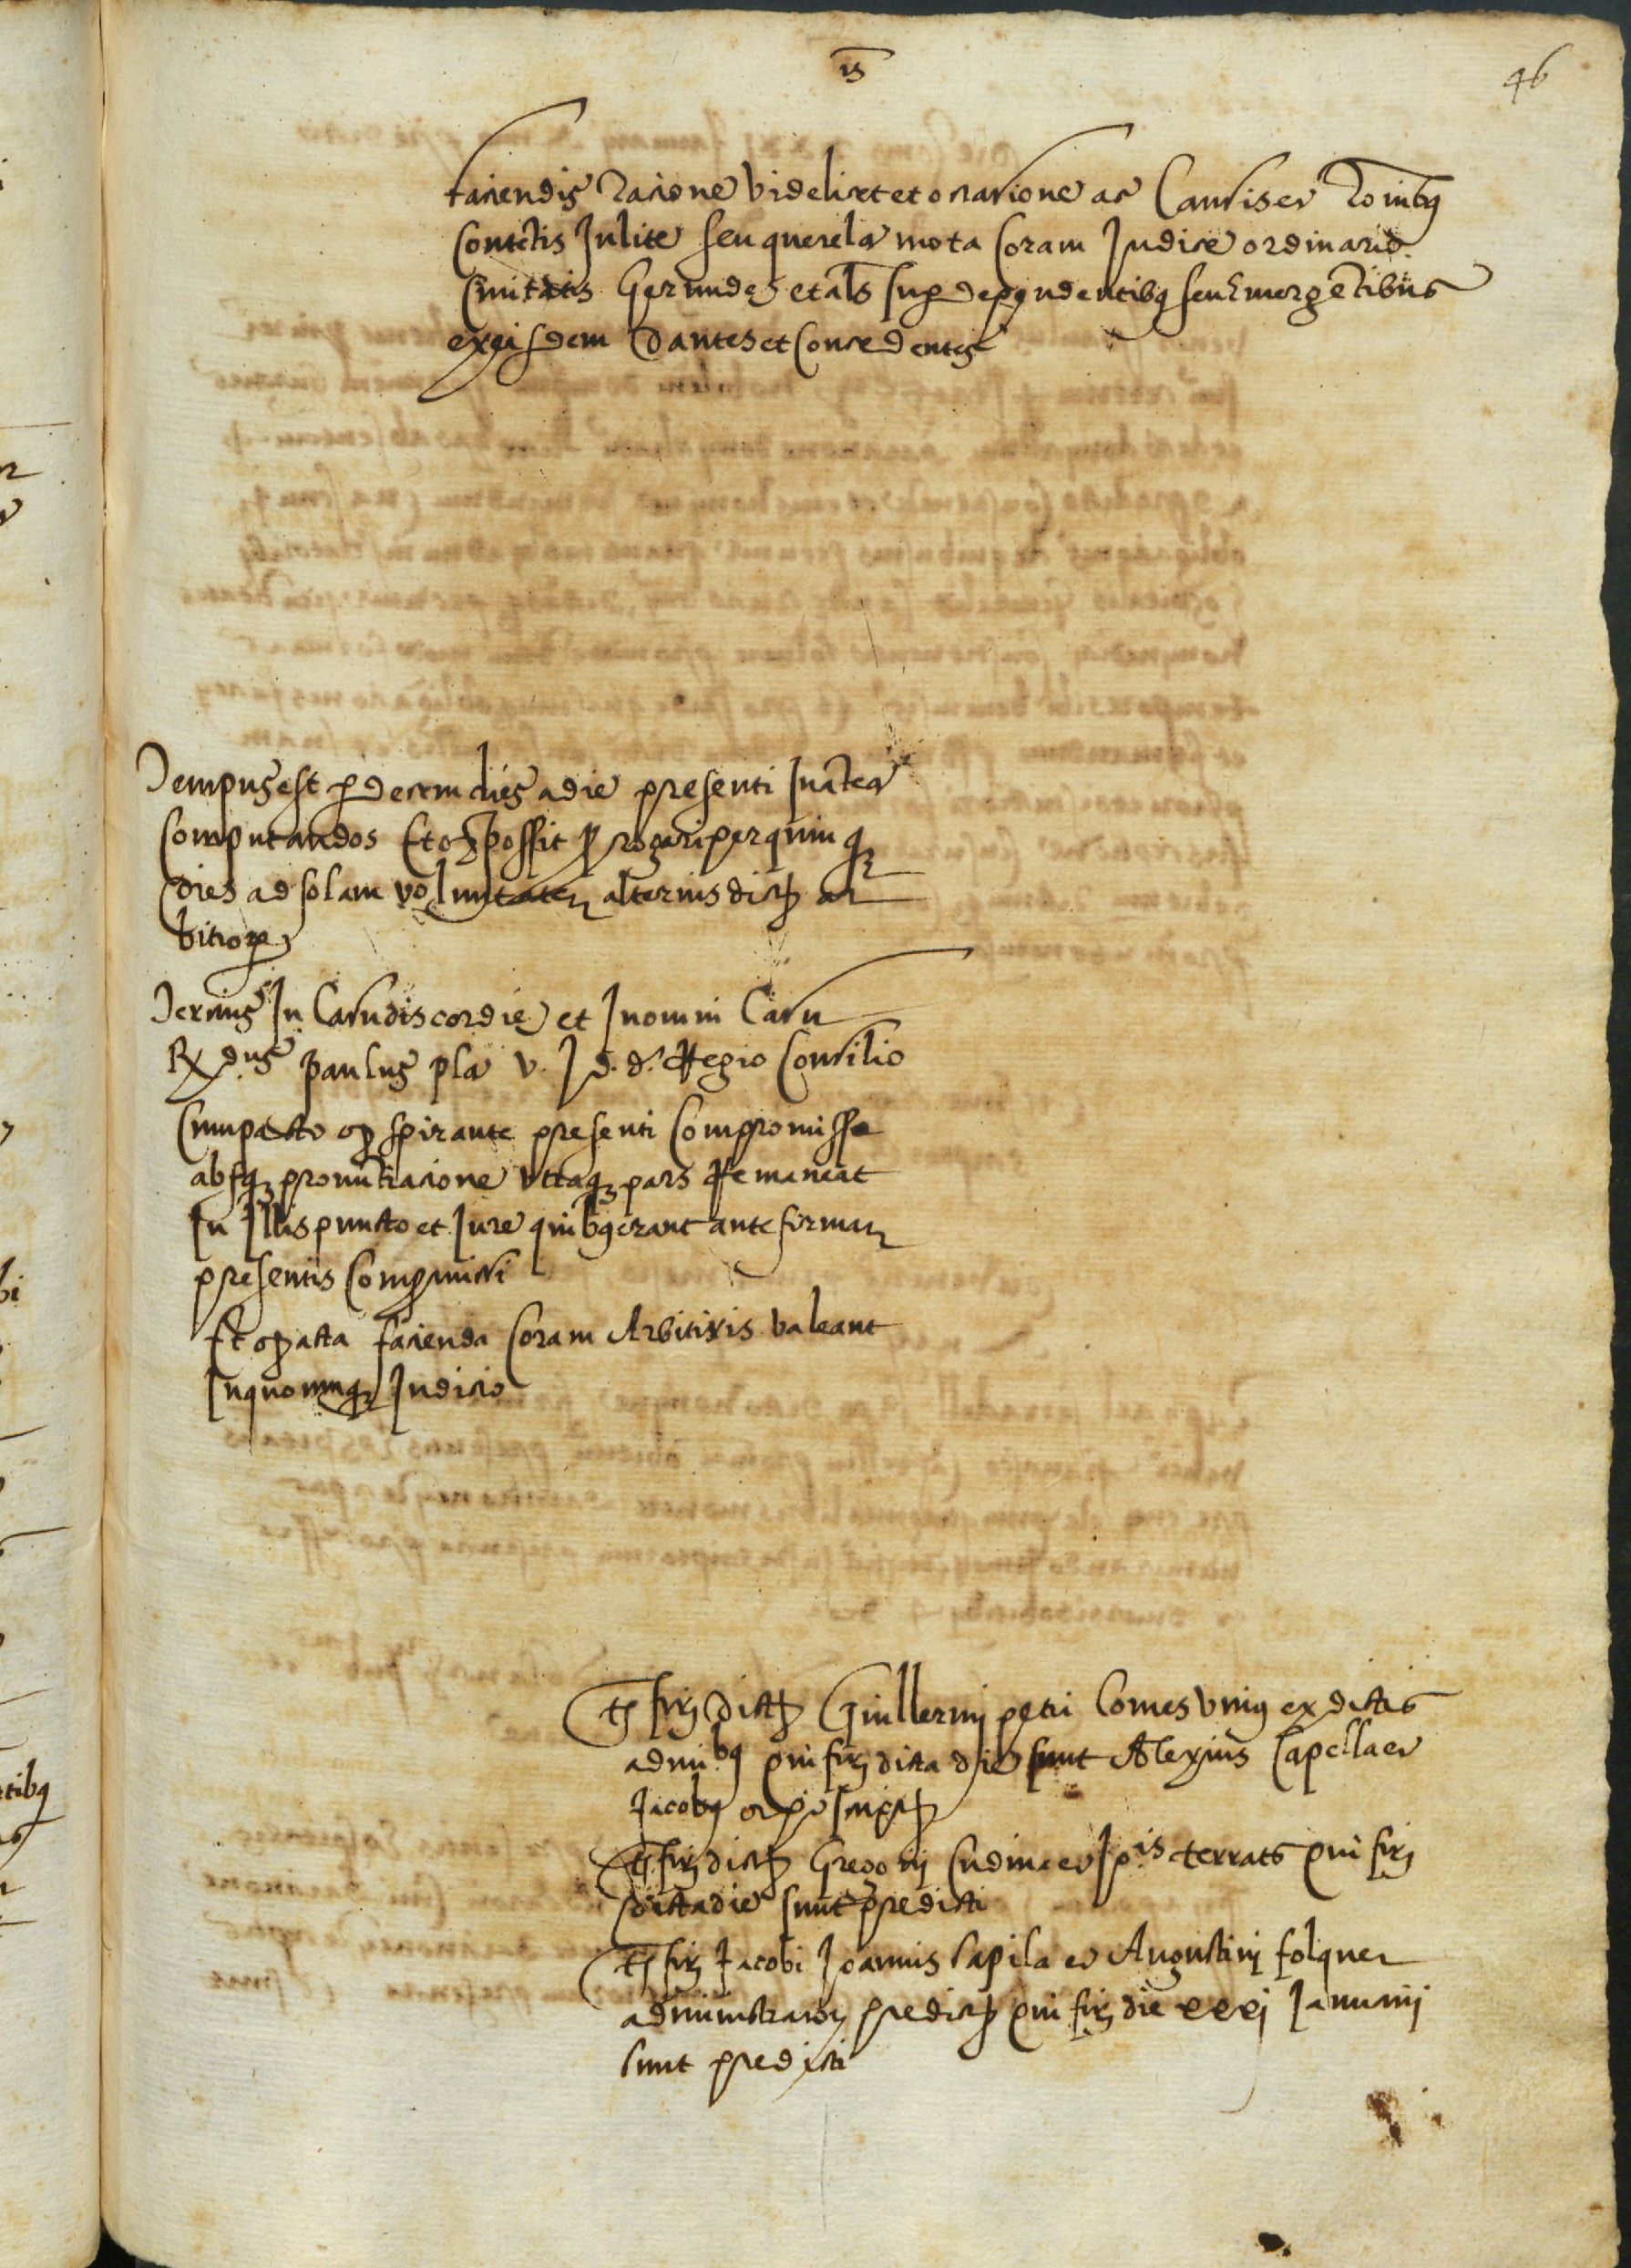 46
faciendis racione videlicet et occasione ac Causis et Ronibq
Contētis In lite seu querela mota Coram Judice ordinario
Civitatis Gerunde et als sup depēndentibq seu Emergētibus
ex eisdem Dantes et Concedentes
Tempus est p decem dies a die presenti In antea
Computandos Et q possit prorogari per quinq
dies ad solam voluntatem alterius dictor ar
bitror
Tercius In Casu discordie et Inomni Casu
Rx dus paulus pla V. J d. d. Regio Consilio
Cum pacto q spirante presenti Compromisso
absq pronūtiacione vtraq pars Remaneat
In Illis puncto et Jure quibq erant ante firmam
presentis Compromissi
Et q acta facienda Coram Arbitris valeant
In quocumq Judicio
ts firm dictor Guillermi petri Comes vnius ex dictis
admibq qui firm dicta die sunt Alexius Capella et
Jacobq scriptor
ts firm dictor Gregorii Cudina et Jois terrats qui firm
dicta die sunt predicti
ts firm Jacobi Joannis Capila et Augustini folquer
administrator predictor qui firm die xxxj Januarii
sunt predicti